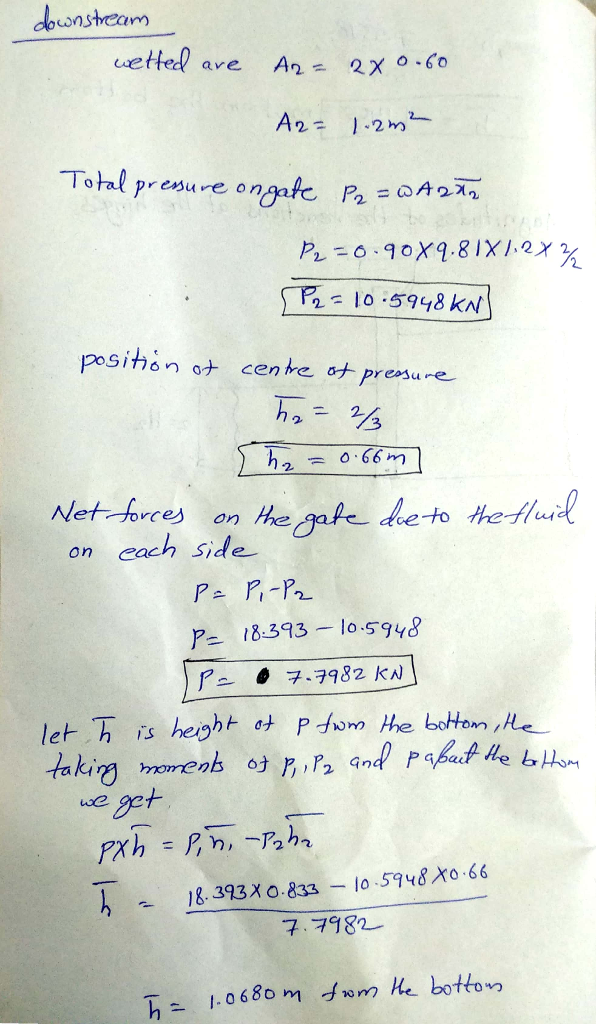 downstream
wetted are A2 = 2 X 0.60
A2 = 1.2m²
Total pressure on gate P2 = ωA2x̄2
P2 = 0.90X9.81X1.2X 2/2
P2 = 10.5948 KN
position of centre of pressure
h̄2 = 2/3
h̄2 = 0.66m
Net forces on the gate due to the fluid
on each side
P = P1-P2
P = 18.393 - 10.5948
P = 7.7982 KN
let h̄ is height of P from the bottom, the
taking moments of P1, P2 and P about the bottom
we get
PXh̄ = P1h̄1 - P2h̄2
h̄ = 18.393X0.833 - 10.5948X0.66
7.7982
h̄ = 1.0680m from the bottom